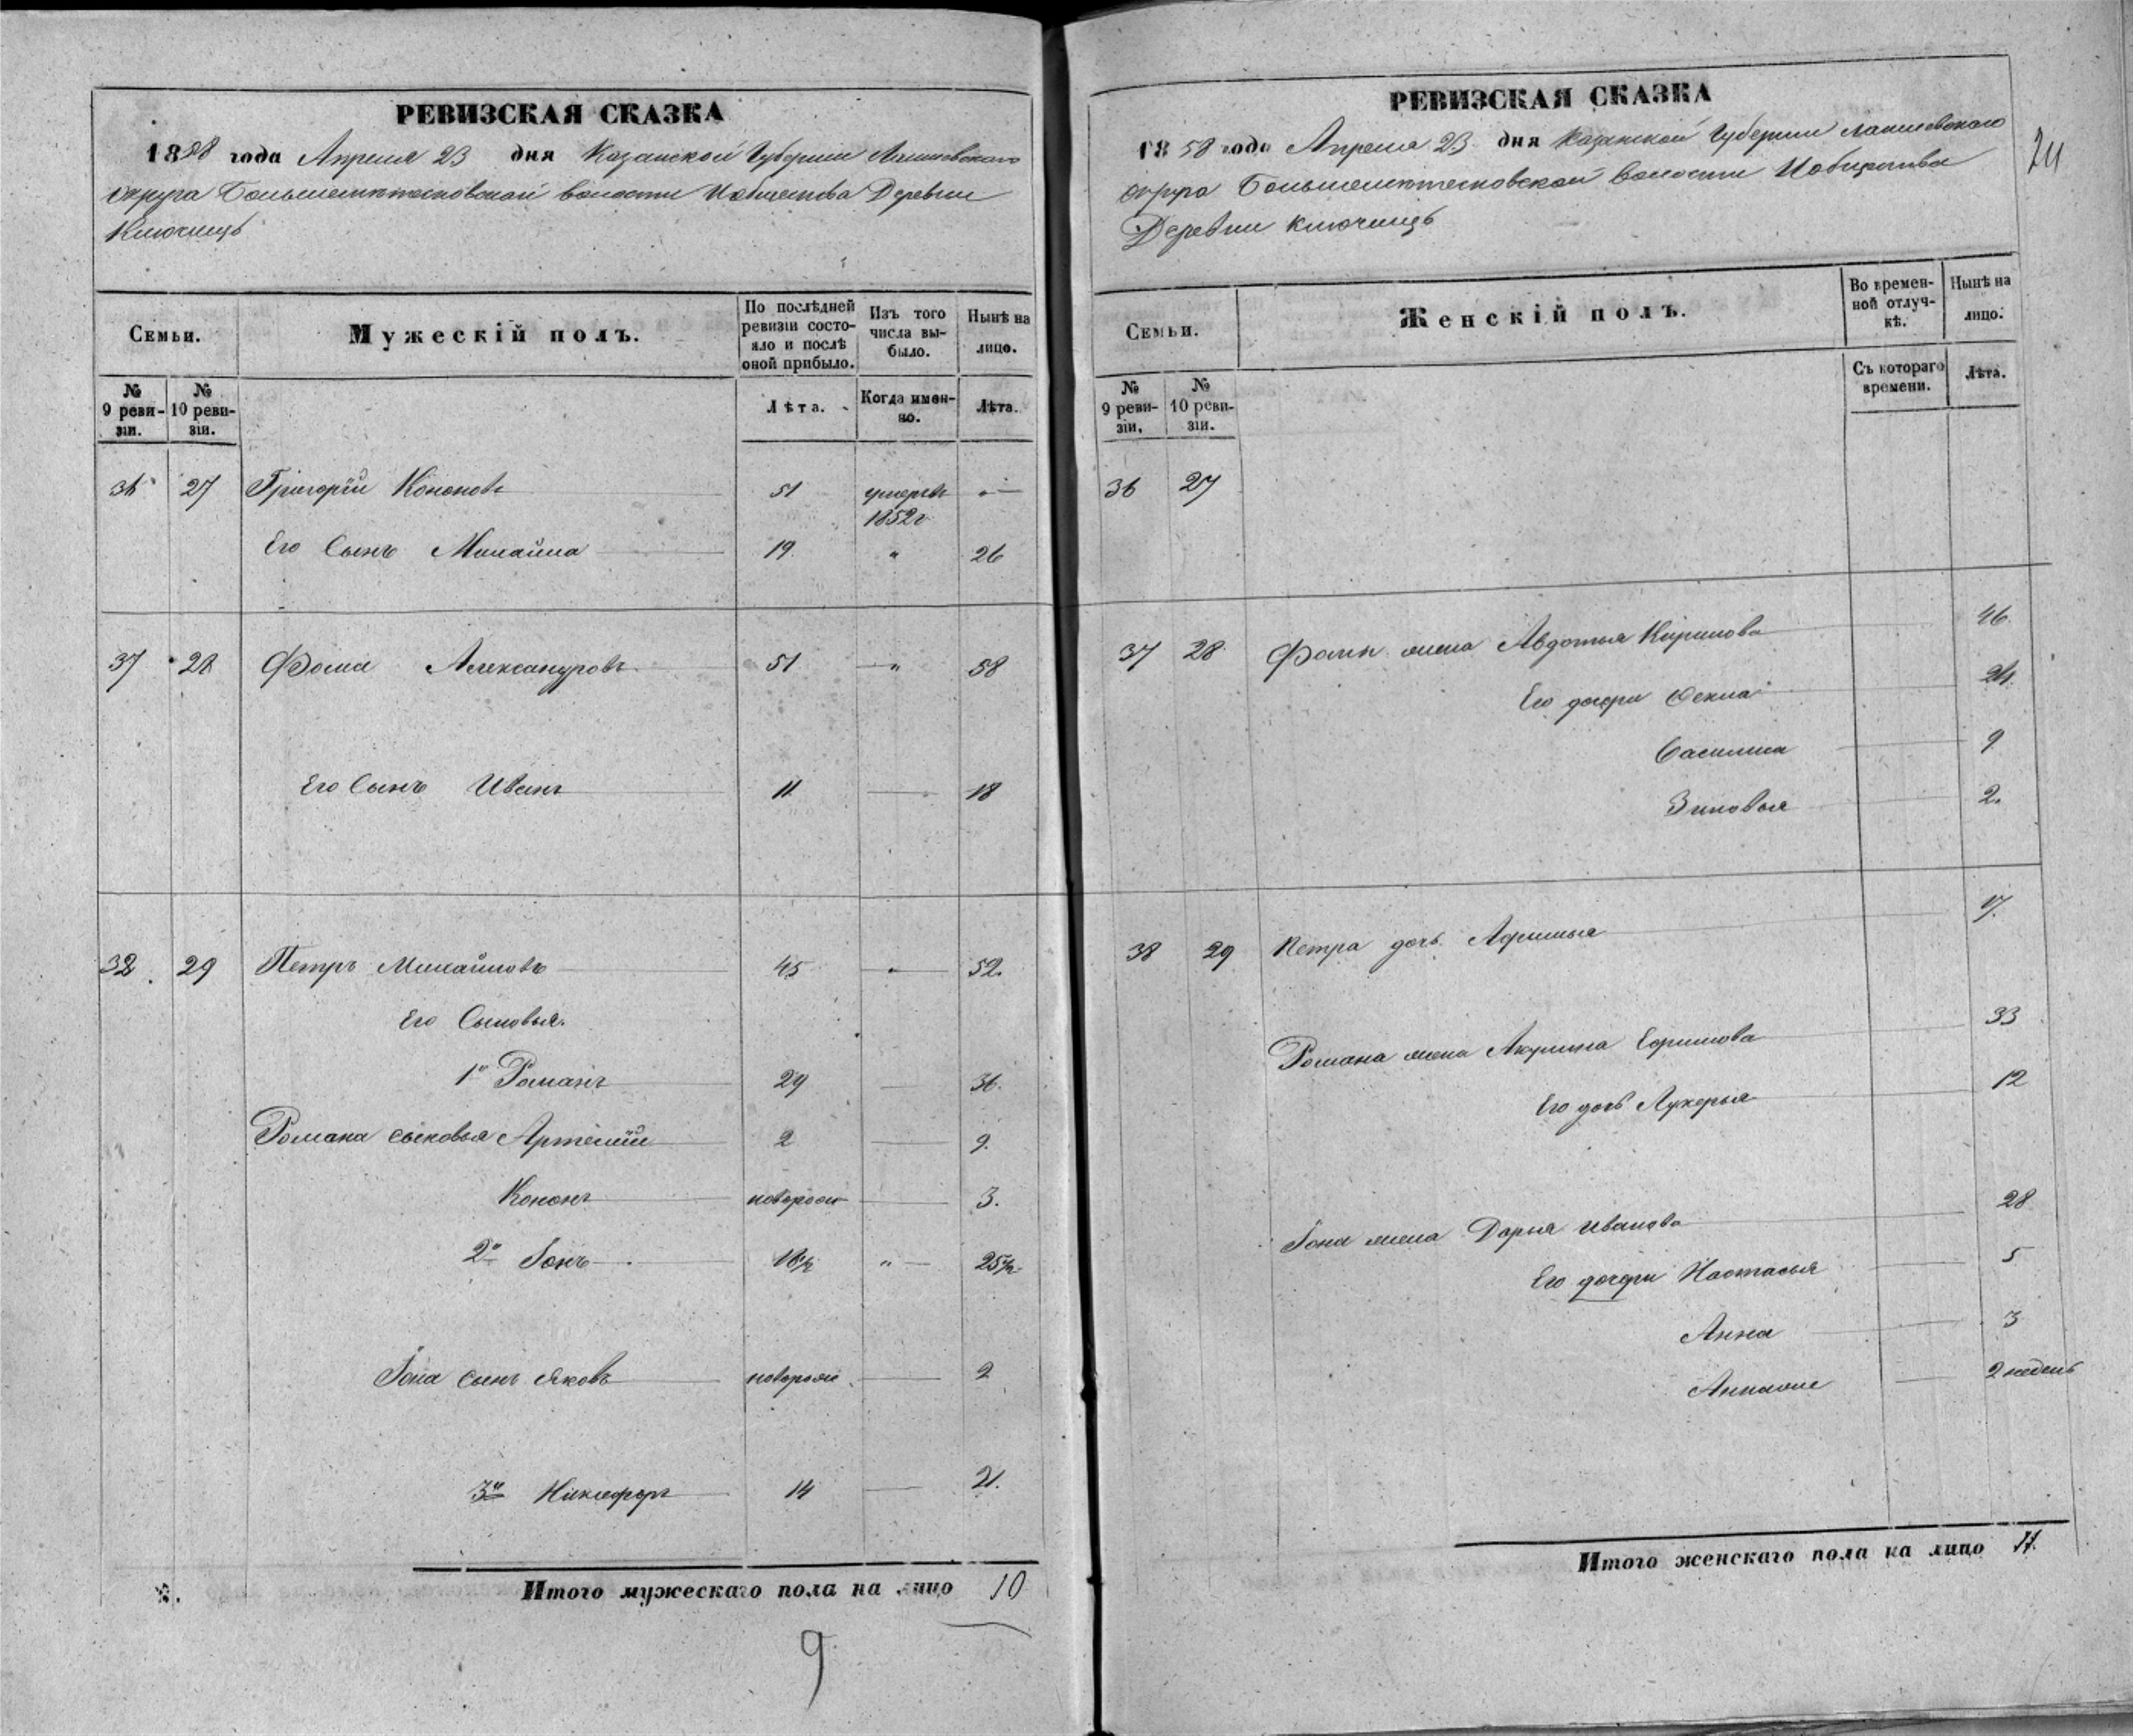 РЕВИЗСКАЯ СКАЗКА
1858 года Апреля 23 дня Казанской Губернии Лаишевскаго
округа волости и общества Деревни
Ключищъ
Семьи.
Мужескій полъ.
По послѣдней ревизіи состояло и послѣ оной прибыло.
Изъ того числа выбыло.
Нынѣ на лицо.
№ 9 ревизіи.
№ 10 ревизіи.
Лѣта.
Когда именно.
Лѣта.
36 27 Григорій Кононовъ 51 умеръ —
1852 г
Его Сынъ Михайла 19 " 26
37 28 Фома Александровъ 51 " 58
Его Сынъ Иванъ 11 — 18
32. 29 Петръ Михайловъ 45 " 52.
Его Сыновья.
1й Романъ 29 — 36.
Романа сыновья Артемій 2 — 9.
Кононъ новорож — 3.
2й Іонъ 18½ " 25½
Іона сынъ Яковъ новорож — 2
3й Никифоръ 14 — 21.
Итого мужескаго пола на лицо 10
9
РЕВИЗСКАЯ СКАЗКА
1858 года Апреля 23 дня Казанской Губернии Лаишевскаго
24
округа волости и общества
Деревни Ключищъ
Семьи.
Женскій полъ.
Во временной отлучкѣ.
Нынѣ на лицо.
№ 9 ревизіи.
№ 10 ревизіи.
Съ котораго времени.
Лѣта.
36 27
37 28 Фомы жена Авдотья Кирилова 46
Его дочери Фекла 24
Василиса 9
Зиновья 2.
38 29 Петра дочь 17.
Романа жена Акулина Ефимова 33
Его дочь Лукерья 12
Іона жена Дарья Иванова 28
Его дочери Настасья 5
Анна 3
2 недель
Итого женскаго пола на лицо 11.